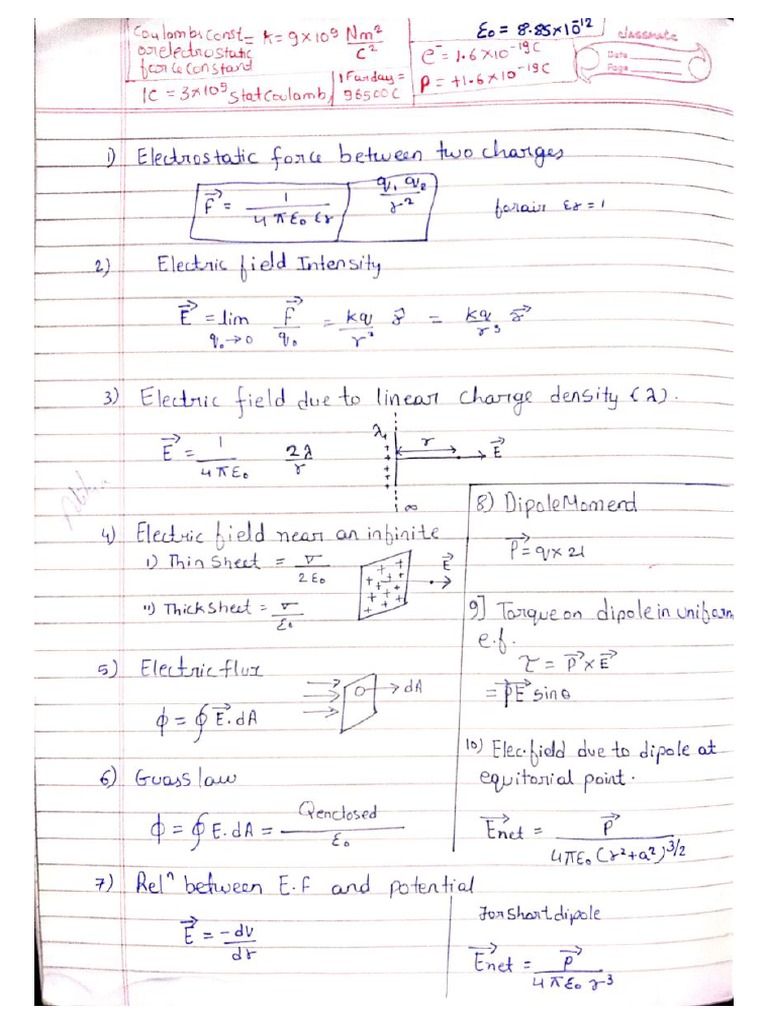 Coulombs const = k = 9×10⁹ Nm²/C²
or electrostatic
force constand
1C = 3×10⁹ Stat Coulamb
1 Farday = 96500C
ε₀ = 8.85×10⁻¹²
e⁻ = 1.6×10⁻¹⁹C
P = +1.6×10⁻¹⁹C
classmate
Date
Page
1) Electrostatic force between two charges
F⃗ = 1/(4πε₀εr) q₁q₂/r²
for air εr = 1
2) Electric field Intensity
E⃗ = lim q₀→0 F⃗/q₀ = kq/r² r̂ = kq/r³ r⃗
3) Electric field due to linear charge density (λ).
E⃗ = 1/(4πε₀) 2λ/r
λ + + + + + + r E⃗
∞
4) Electric field near an infinite
i) Thin Sheet = σ/2ε₀
ii) Thick sheet = σ/ε₀
+ + + + + + + + + + + + E⃗
5) Electric flux
ϕ = ∮E⃗.dA
dA
6) Guass law
ϕ = ∮E.dA = Qenclosed/ε₀
7) Relⁿ between E.F and potential
E⃗ = -dv/dr
8) Dipole Momend
P⃗ = q×2l
9] Torque on dipole in uniform
e.f.
τ = P⃗×E⃗
= P⃗E⃗ sinθ
10) Elec.field due to dipole at
equitorial point.
E⃗net = P⃗/(4πε₀(r²+a²)^3/2)
For shart dipole
E⃗net = P⃗/(4πε₀r³)